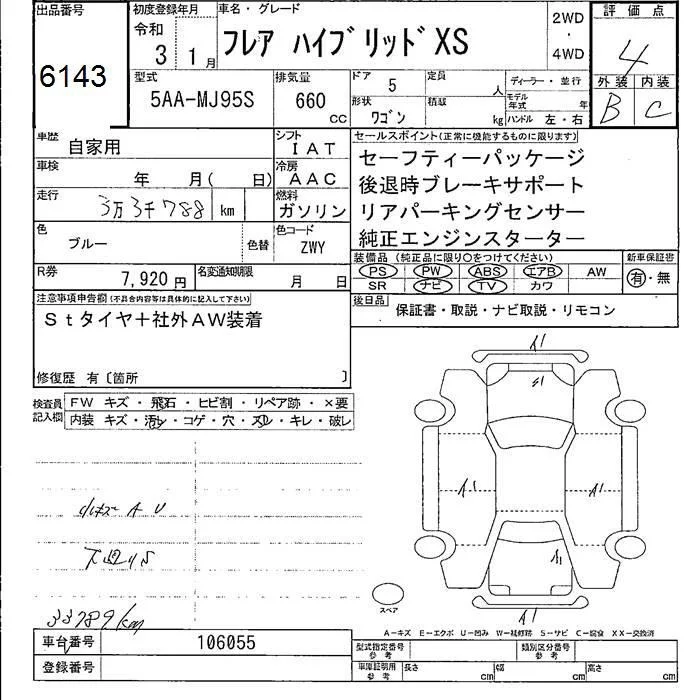 出品番号 初度登録年月 車名・グレード 2WD・4WD 評価点
6143 令和 3 1月 フレア ハイブリッド XS 4
型式 排気量 ドア 5 定員 人 ディーラー・並行 外装 内装
5AA-MJ95S 660 CC 形状 ワゴン 積載 kg モデル年式 年 ハンドル 左・右 B C
車歴 自家用 シフト IAT セールスポイント(正常に機能するものに限ります)
車検 年 月( 日) 冷房 AAC セーフティーパッケージ
後退時ブレーキサポート
走行 3万3千788 km 燃料 ガソリン リアパーキングセンサー
色 ブルー 色替 色コード ZWY 純正エンジンスターター
装備品 (純正品に限り○をつけてください) 新車保証書
PS PW ABS エアB AW 有・無
R券 7,920円 名変通知期限 月 日 SR ナビ TV カワ
後日品 保証書・取説・ナビ取説・リモコン
注意事項申告欄(不具合内容等は具体的に記入して下さい)
Stタイヤ+社外AW装着
修復歴 有〔箇所 〕
検査員記入欄 FW キズ・飛石・ヒビ割・リペア跡・×要
内装 キズ・汚レ・コゲ・穴・スレ・キレ・破レ
A1
S1
A1 A1
A1
A1
小キズ A U
下廻りS
33789km
スペア
A-キズ E-エクボ U-凹み W-補修跡 S-サビ C-腐食 XX-交換済
車台番号 106055 型式指定番号 参考 類別区分番号 参考
登録番号 車庫証明用 参考 長さ cm 幅 cm 高さ cm